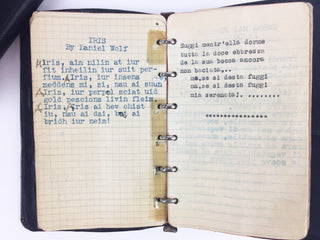 IRIS
By Daniel Wolf
Iris, aim nilin at iur
fit inheilin iur suit per-
fium. Iris, iur insens
meddens mi, si, nau ai suun
Iris, iur perpel sciat uid
gold pescions livin fleim.
Iris, Iris ai hev chist
iu, nau ai dai, bai ai
bridh iur neim!
Suggi mentr'ella dorme
tutta la doce ebbrezza
de la sua bocca ancora
non baciata...
ma,se si desta fuggi
ma,se si desta fuggi
mia serenata!.........